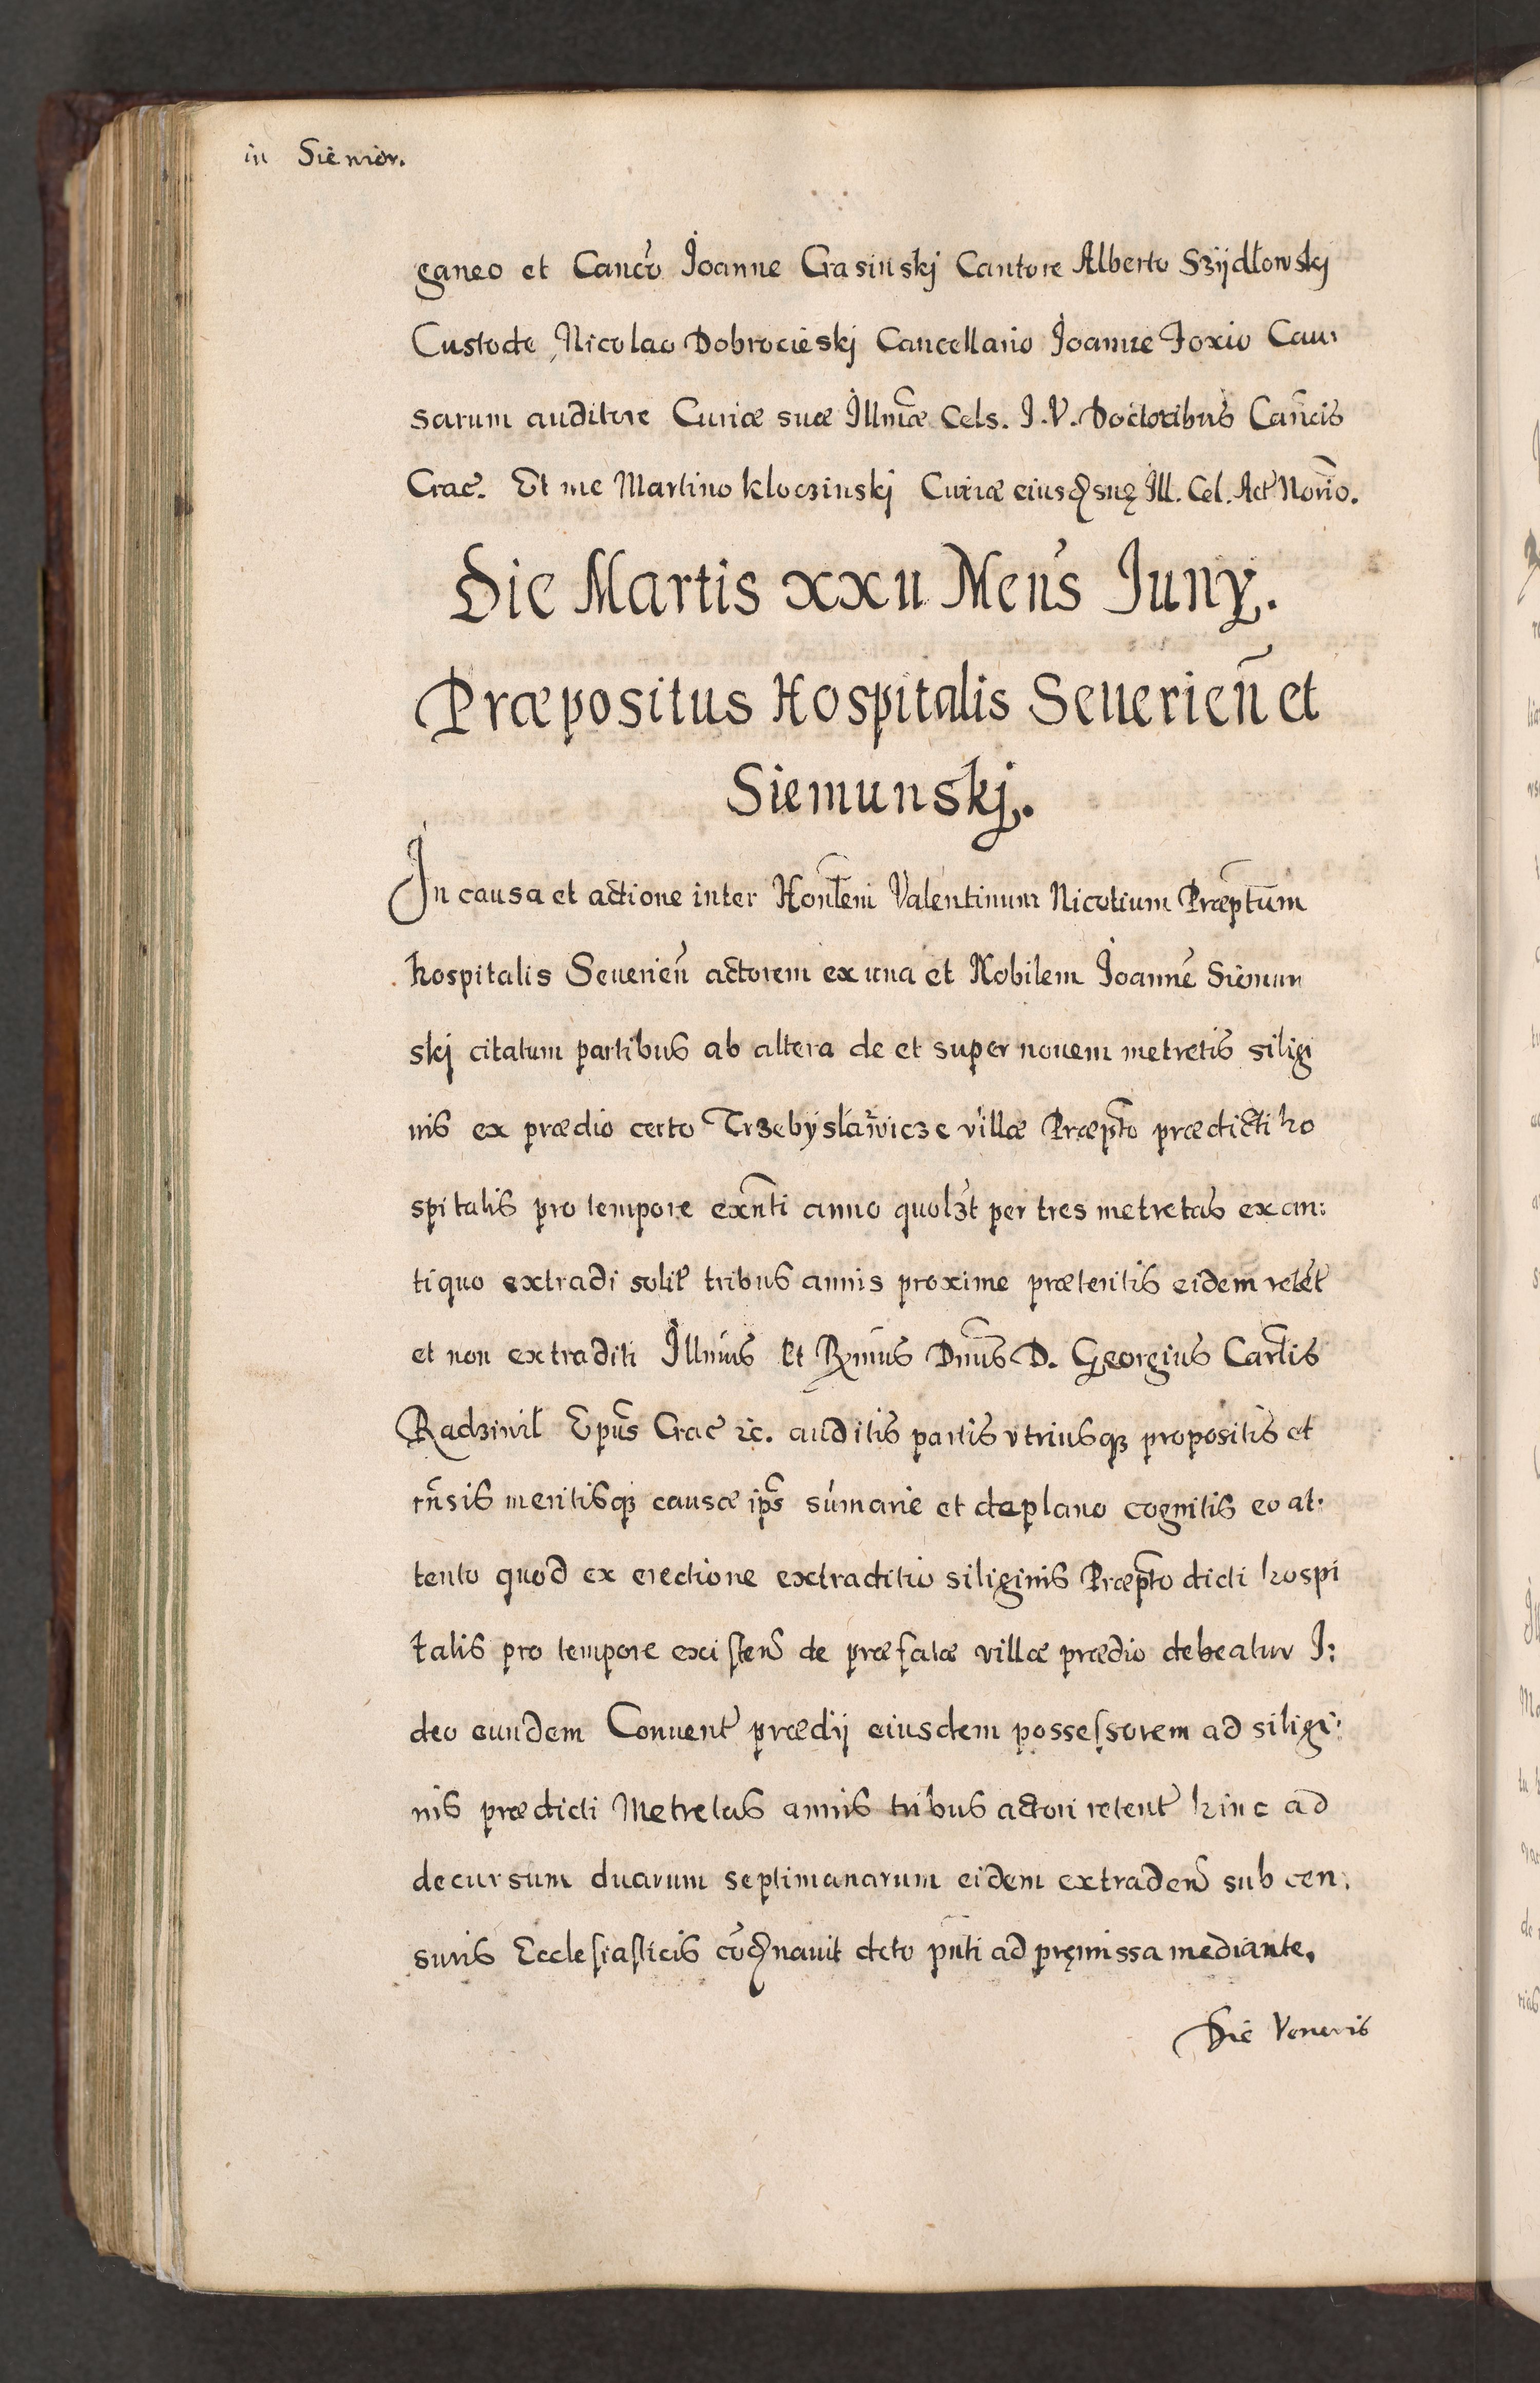 in Siewior.
ganeo et Canco Ioanne Grasinskj Cantore Alberto Szydłowskj
Custode, Nicolao Dobrocieskj Cancellario Joanne Foxio Cau,
sarum auditore Curiæ suæ Illmæ Cels. I.V. Doctoribus Cancis
Crac. Et me Martino Kloczinskj Curiæ eiusd suę Ill. Cel. Act Norio.
Die Martis xxii Mens Juny.
Præpositus Hospitalis Seuerien et
Siemunskj.
In causa et actione inter Honlem Valentinum Nicolium Præptum
hospitalis Seuerien actorem ex una et Nobilem Joannē Siemun
skj citatum partibus ab altera de et super nouem metretis silig
nis ex prædio certo Trzebyslawicze villæ Præpto prædicti ho
spitalis pro tempore exnti anno quolzt per tres metretas ex an:
tiquo extradi solit tribus annis proxime præteritis eidem retet
et non extraditi Illmus Et Rmus Dnus D. Georgius Cartlis
Radziwil Epus Crac zc. auditis partis vtriusqz propositis et
rnsis meritisqz causæ ips sumarie et deplano cognitis eo at:
tento quod ex erectione extraditio siliginis Præpto dicti hospi
talis pro tempore existen de præfatæ villæ prædio debeatur I:
deo eundem Conuent prædij eiusdem possessorem ad siligi:
nis prædicti Metretas annis tribus actori retent hinc ad
decursum duarum septimanarum eidem extraden sub cen:
suris Ecclesiasticis codnauit deto pnti ad pręmissa mediante.
Die Veneris